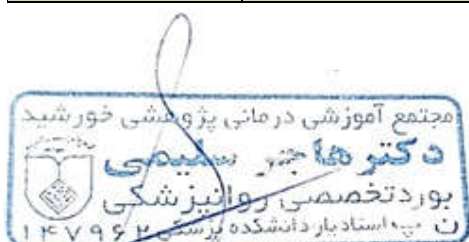 مجتمع آموزشی درمانی پژوهشی خورشید
دکتر هاجر سلیمی
بورد تخصصی روانپزشکی
ن پ استادیار دانشکده پزشکی ۱۴۷۹۶۲